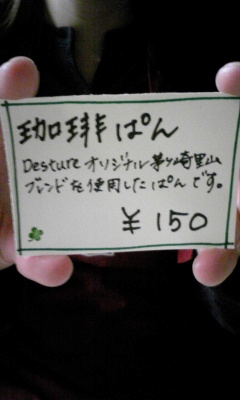 珈琲ぱん
Desture オリジナル茅ヶ崎里山
ブレンドを使用したぱんです。
¥150